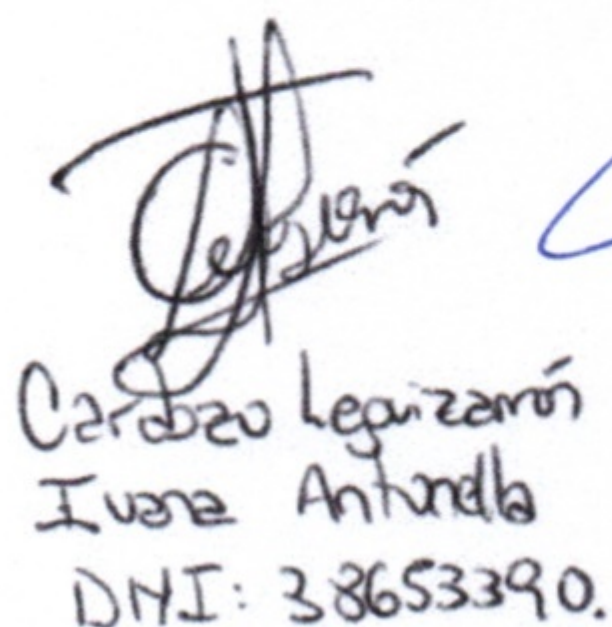 Cardozo Leguizamón
Ivana Antonella
DNI: 38653390.